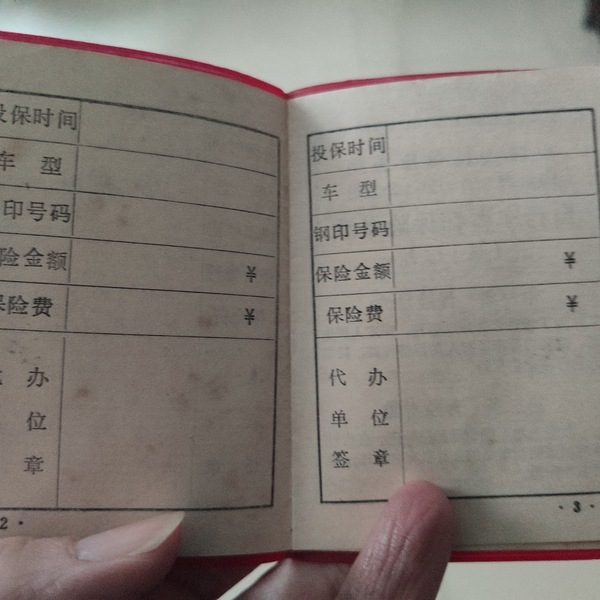 投保时间
车 型
印号码
险金额 ¥
保险费 ¥
办
位
章
2 ·
投保时间
车 型
钢印号码
保险金额 ¥
保险费 ¥
代 办
单 位
签 章
· 3 ·